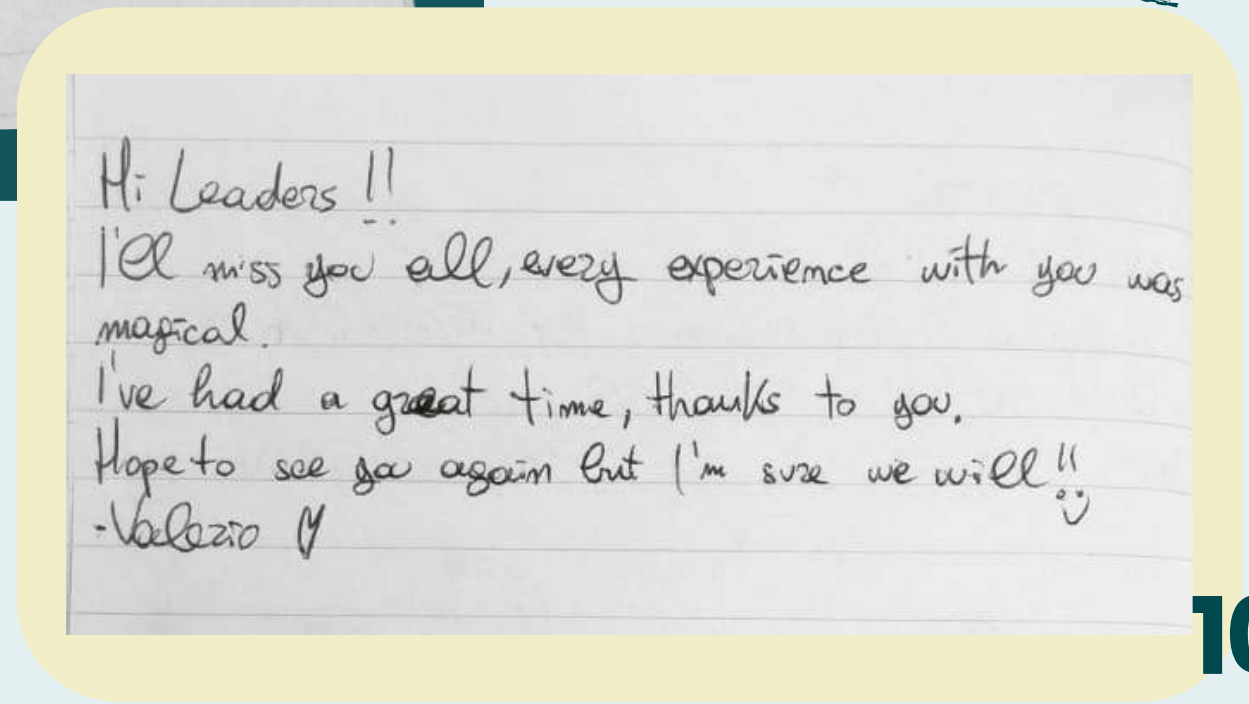 Hi Leaders !!
I'll miss you all, every experience with you was
magical.
I've had a great time, thanks to you.
Hope to see you again but I'm sure we will!!
-Valerio
10